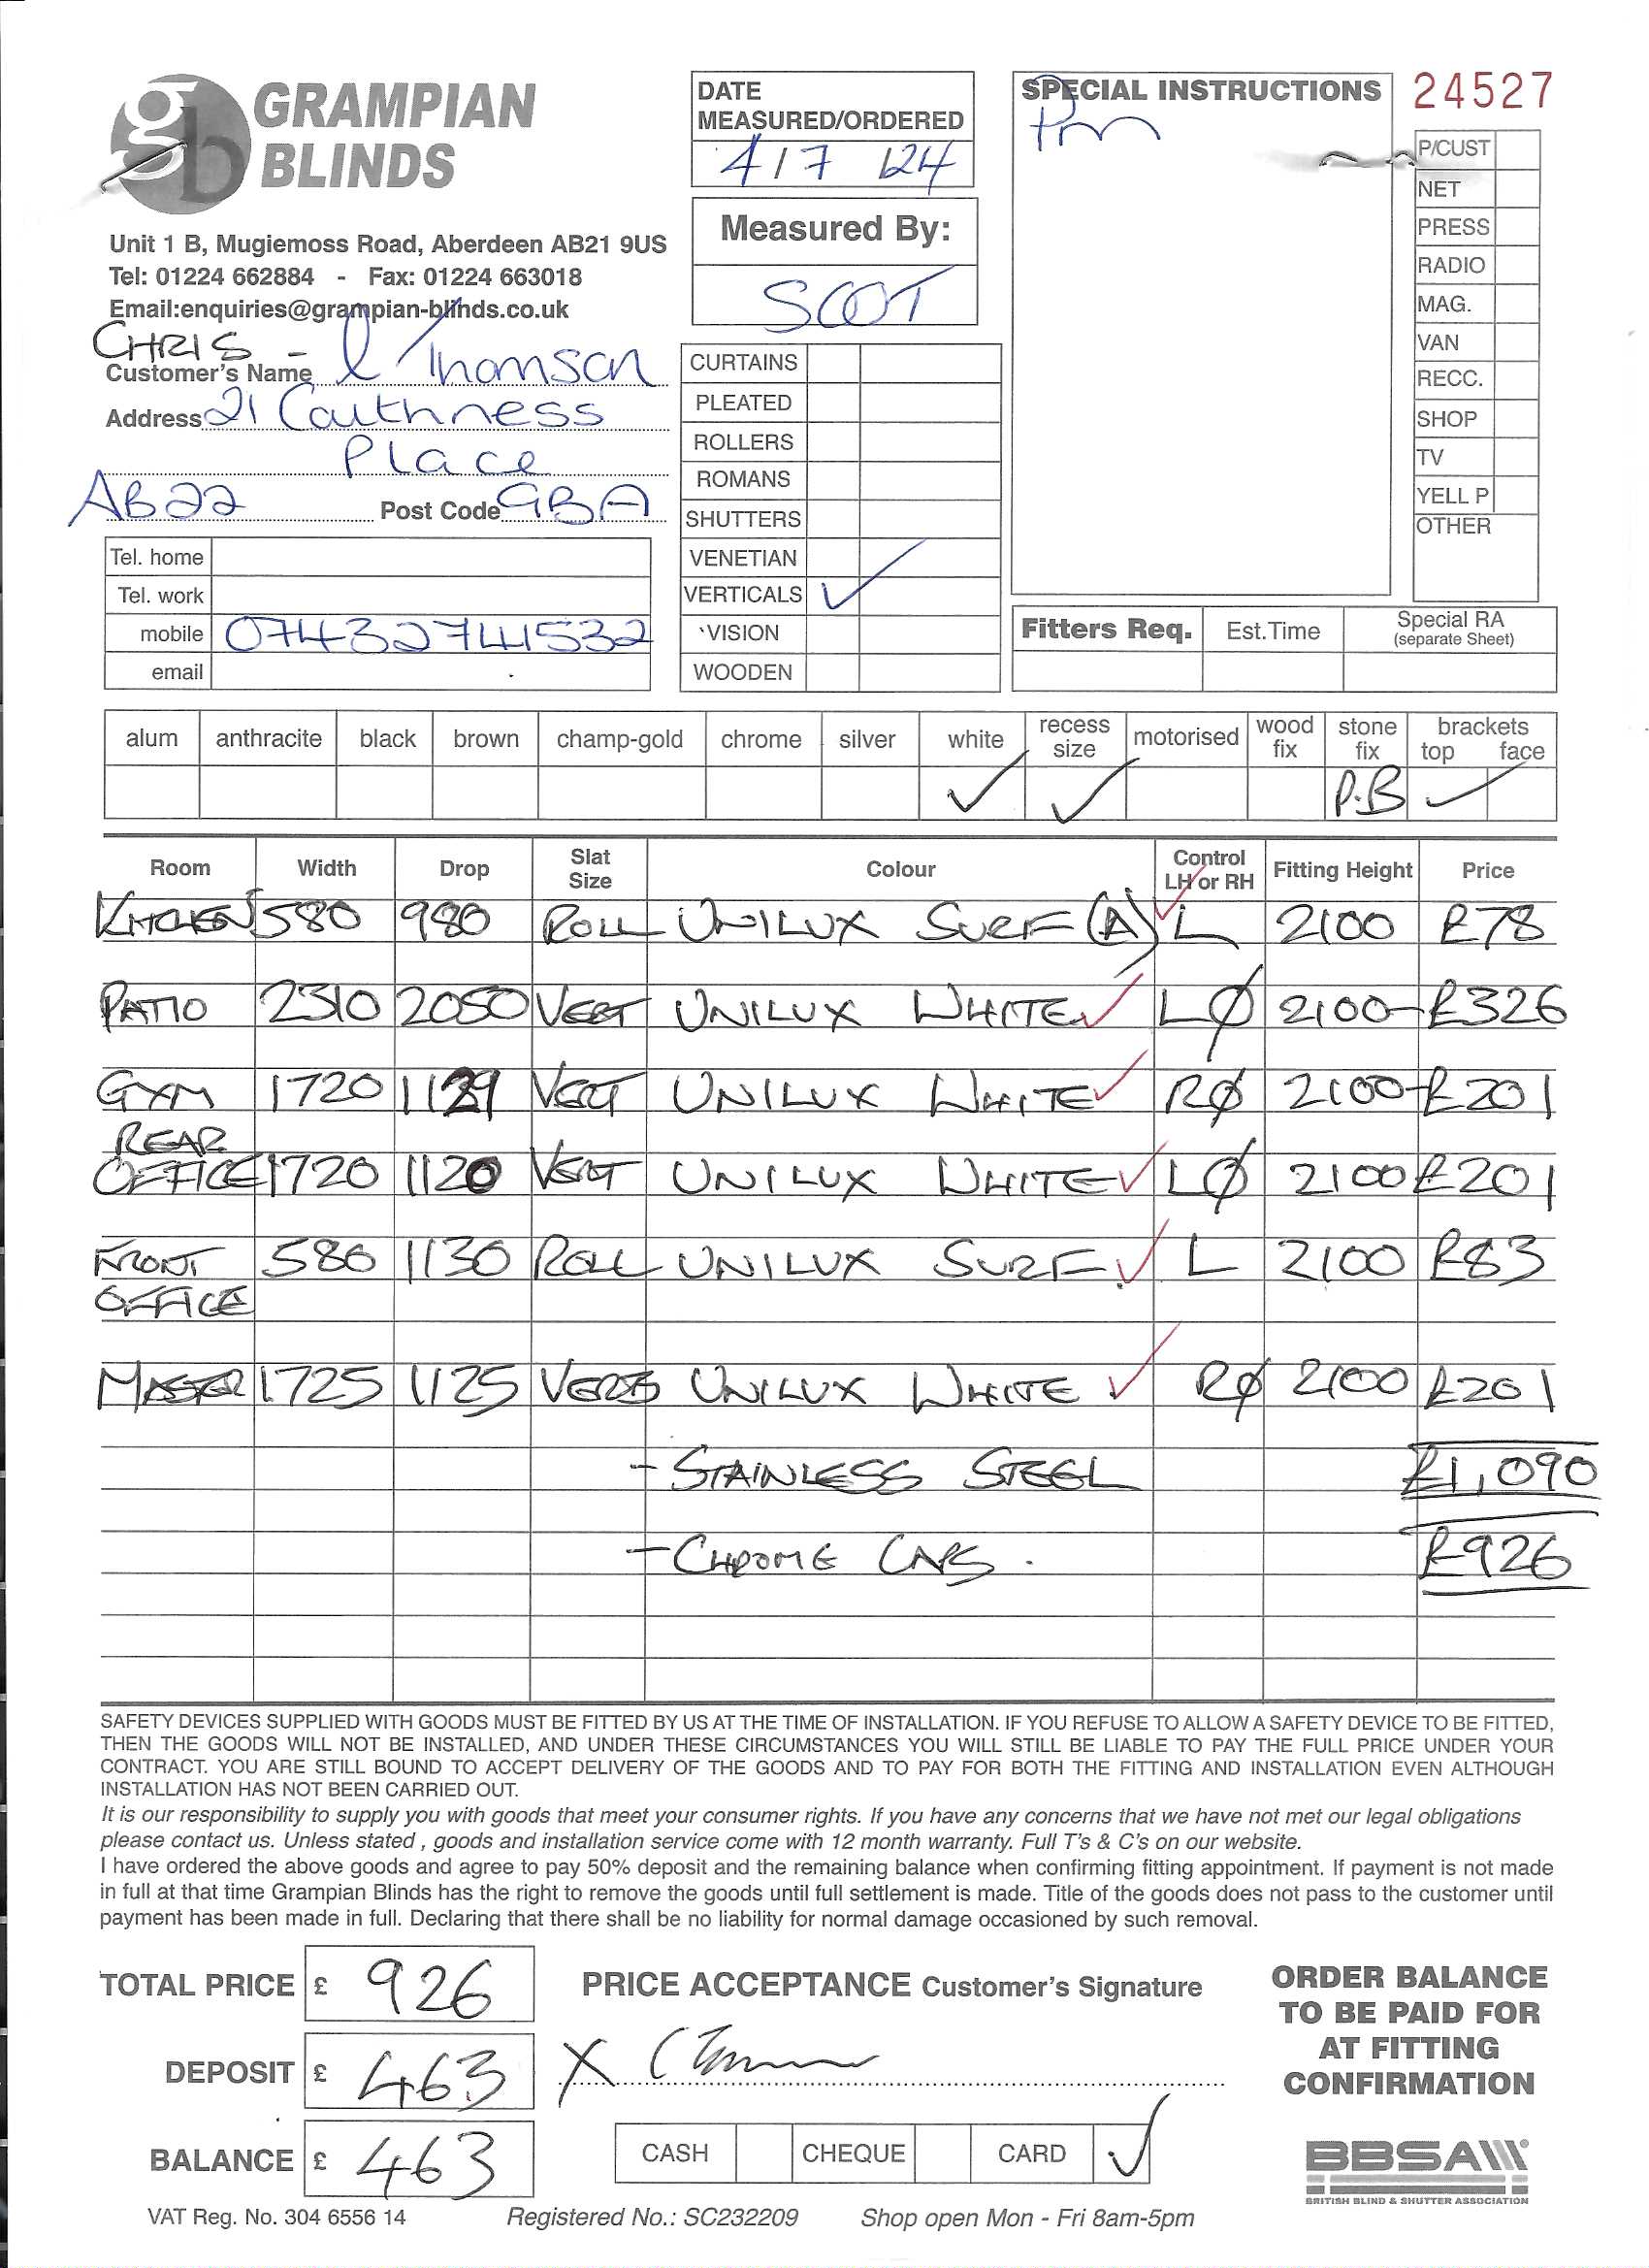 GRAMPIAN
BLINDS
Unit 1 B, Mugiemoss Road, Aberdeen AB21 9US
Tel: 01224 662884 - Fax: 01224 663018
Email:enquiries@grampian-blinds.co.uk
CHRIS -
Customer's Name Thomson
Address 21 Caithness
Place
AB22 Post Code 9BA
Tel. home
Tel. work
mobile 07432741532
email
DATE
MEASURED/ORDERED
4/7/24
Measured By:
SCOT
CURTAINS
PLEATED
ROLLERS
ROMANS
SHUTTERS
VENETIAN
VERTICALS ✓
VISION
WOODEN
SPECIAL INSTRUCTIONS
Pm
24527
P/CUST
NET
PRESS
RADIO
MAG.
VAN
RECC.
SHOP
TV
YELL P
OTHER
Fitters Req. Est.Time Special RA
(separate Sheet)
alum anthracite black brown champ-gold chrome silver white recess size motorised wood fix stone fix brackets top face
✓ ✓ P.B ✓
Room Width Drop Slat Size Colour Control LH or RH Fitting Height Price
KITCHEN 580 980 ROLL UNILUX SURF (A) L 2100 £78
PATIO 2310 2050 VERT UNILUX WHITE ✓ LØ 2100 £326
GYM 1720 VERT UNILUX WHITE ✓ RØ 2100 £201
REAR
OFFICE 1720 1120 VERT UNILUX WHITE ✓ LØ 2100 £201
FRONT 580 1130 ROLL UNILUX SURF ✓ L 2100 £83
OFFICE
MASTER 1725 1125 VERTS UNILUX WHITE ✓ RØ 2100 £201
- STAINLESS STEEL £1,090
- CHROME CAPS. £926
SAFETY DEVICES SUPPLIED WITH GOODS MUST BE FITTED BY US AT THE TIME OF INSTALLATION. IF YOU REFUSE TO ALLOW A SAFETY DEVICE TO BE FITTED,
THEN THE GOODS WILL NOT BE INSTALLED, AND UNDER THESE CIRCUMSTANCES YOU WILL STILL BE LIABLE TO PAY THE FULL PRICE UNDER YOUR
CONTRACT. YOU ARE STILL BOUND TO ACCEPT DELIVERY OF THE GOODS AND TO PAY FOR BOTH THE FITTING AND INSTALLATION EVEN ALTHOUGH
INSTALLATION HAS NOT BEEN CARRIED OUT.
It is our responsibility to supply you with goods that meet your consumer rights. If you have any concerns that we have not met our legal obligations
please contact us. Unless stated , goods and installation service come with 12 month warranty. Full T's & C's on our website.
I have ordered the above goods and agree to pay 50% deposit and the remaining balance when confirming fitting appointment. If payment is not made
in full at that time Grampian Blinds has the right to remove the goods until full settlement is made. Title of the goods does not pass to the customer until
payment has been made in full. Declaring that there shall be no liability for normal damage occasioned by such removal.
TOTAL PRICE £ 926
DEPOSIT £ 463
BALANCE £ 463
PRICE ACCEPTANCE Customer's Signature
X
CASH CHEQUE CARD ✓
ORDER BALANCE
TO BE PAID FOR
AT FITTING
CONFIRMATION
BBSA
BRITISH BLIND & SHUTTER ASSOCIATION
VAT Reg. No. 304 6556 14 Registered No.: SC232209 Shop open Mon - Fri 8am-5pm